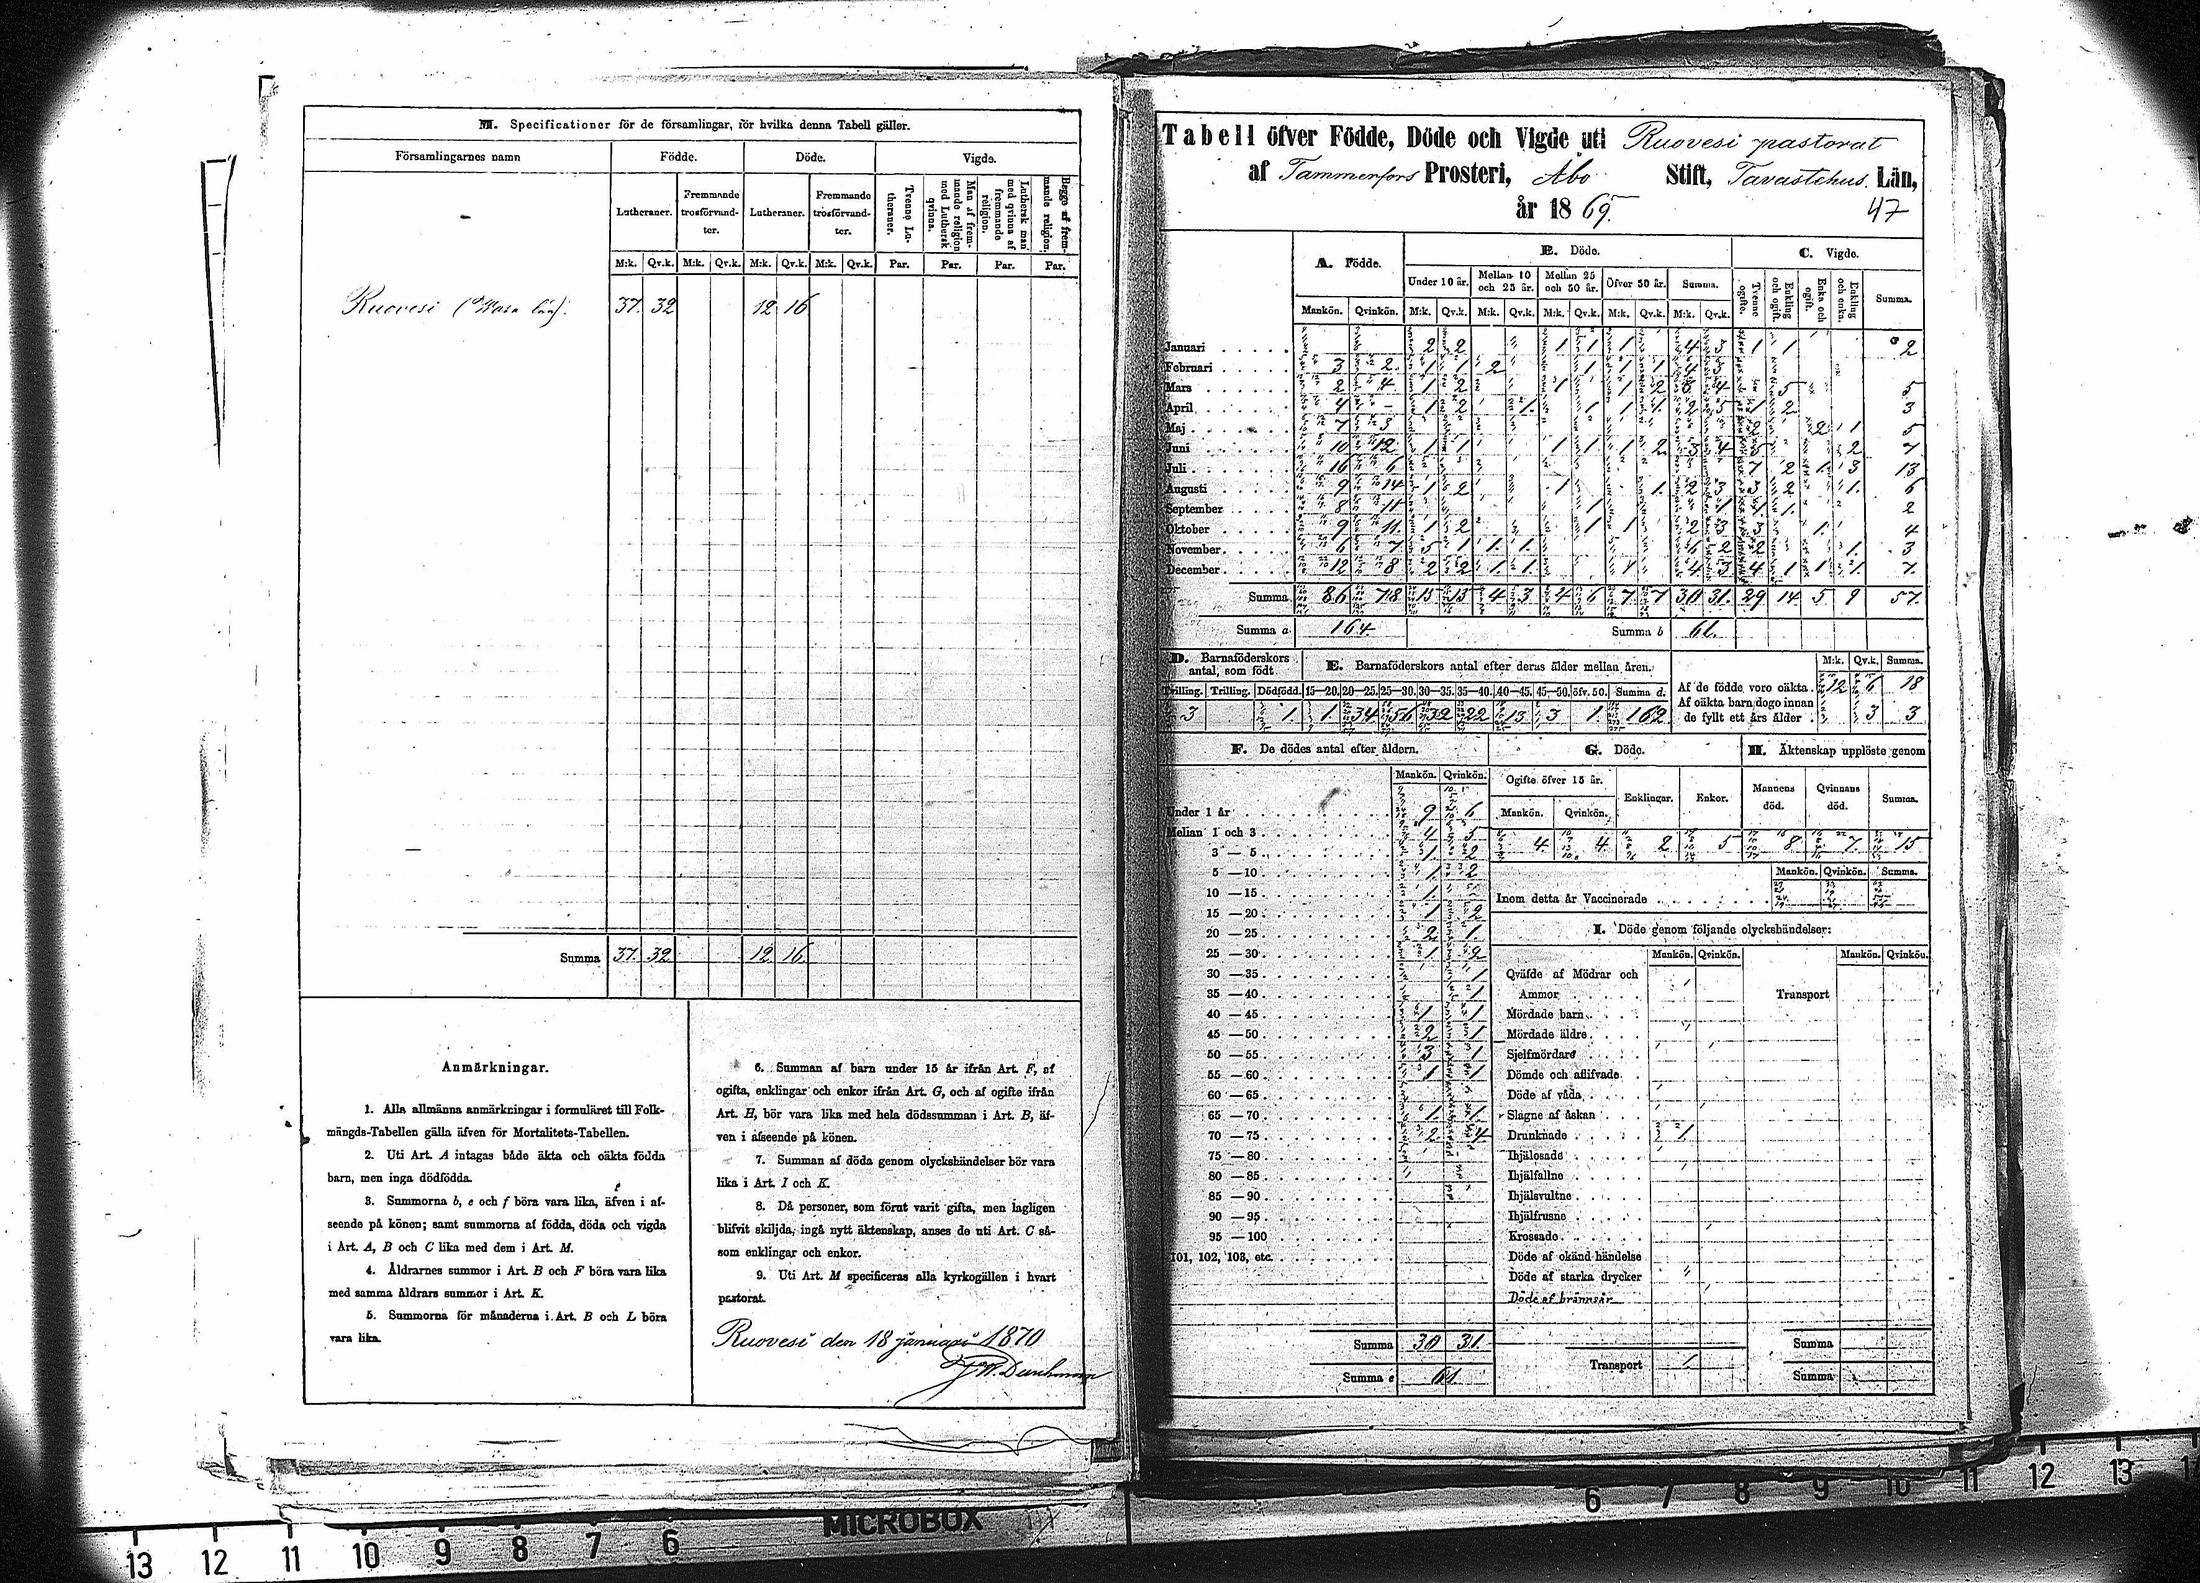 M. Specificationer för de församlingar, för hvilka denna Tabell gäller.
Församlingarnes namn Födde. Döde. Vigde.
Lutheraner. Fremmande trosförvandter. Lutheraner. Fremmande trosförvandter. Tvenne Lutheraner. Man af fremmande religion med Luthersk qvinna. Luthersk man med qvinna af fremmande religion. Begge af fremmande religion.
M:k. Qv.k. M:k. Qv.k. M:k. Qv.k. M:k. Qv.k. Par. Par. Par. Par.
Ruovesi (Wasa län). 37. 32 12 16
Summa 37. 32 12 16
Anmärkningar.
1. Alla allmänna anmärkningar i formuläret till Folk-
mängds-Tabellen gälla äfven för Mortalitets-Tabellen.
2. Uti Art. A intagas både äkta och oäkta födda
barn, men inga dödfödda.
3. Summorna b, e och f böra vara lika, äfven i af-
seende på könen; samt summorna af födda, döda och vigda
i Art. A, B och C lika med dem i Art. M.
4. Åldrarnes summor i Art. B och F böra vara lika
med samma åldrars summor i Art. K.
5. Summorna för månaderna i Art. B och L böra
vara lika.
6. Summan af barn under 15 år ifrån Art. F, af
ogifta, enklingar och enkor ifrån Art. G, och af ogifte ifrån
Art. H, bör vara lika med hela dödssumman i Art. B, äf-
ven i afseende på könen.
7. Summan af döda genom olyckshändelser bör vara
lika i Art. I och K.
8. Då personer, som förut varit gifta, men lagligen
blifvit skiljda, ingå nytt äktenskap, anses de uti Art. C så-
som enklingar och enkor.
9. Uti Art. M specificeras alla kyrkogällen i hvart
pastorat.
Ruovesi den 18 januari 1870
Tabell öfver Födde, Döde och Vigde uti Ruovesi pastorat
af Tammerfors Prosteri, Åbo Stift, Tavastehus Län,
år 1869. 47
A. Födde. B. Döde. C. Vigde.
Under 10 år. Mellan 10 och 25 år. Mellan 25 och 50 år. Öfver 50 år. Summa. Tvenne ogifte. Enkling och ogift. Enka och ogift. Enkling och enka. Summa.
Mankön. Qvinkön. M:k. Qv.k. M:k. Qv.k. M:k. Qv.k. M:k. Qv.k. M:k. Qv.k.
Januari 2 2 1 1 1 4 3 1 1 2
Februari 3 2 1 1 2 1 1 1 4 3
Mars 2 4 1 2 1 1 2 3 4 5 5
April 4 - 1 2 1. 1 1 1. 2 5 1 2 3
Maj 7 3 2 2 1 5
Juni 10 12 1 1 1 1 1 2 3 4 5 2 7
Juli 16 6 7 2 1 3 13
Augusti 9 14 1 2 1 1. 2 3 3 2 1. 6
September 8 11 1 1 1. 1. 2
Oktober 9 11. 1 2 1 1 2 3 3 1. 4
November 6 7 5 1 1. 1. 6 2 2 1. 3
December 12 8 2 2 1. 1. 1 4 3 4 1 1 1. 7
Summa 86 78 15 13 4 3 4 6 7 7 30 31. 29 14 5 9 57.
Summa a 164 Summa b 61.
D. Barnaföderskors antal, som födt E. Barnaföderskors antal efter deras ålder mellan åren. M:k. Qv.k. Summa.
Tvilling. Trilling. Dödfödd. 15—20. 20—25. 25—30. 30—35. 35—40. 40—45. 45—50. öfv. 50. Summa d.
3 1. 1. 34 56 32 22 13. 3 1. 162
Af de födde voro oäkta 12 6 18
Af oäkta barn dogo innan de fyllt ett års ålder 3 3
F. De dödes antal efter åldern. G. Döde. H. Äktenskap upplöste genom
Mankön. Qvinkön. Ogifte öfver 15 år. Mankön. Qvinkön. Enklingar. Enkor. Mannens död. Qvinnans död. Summa.
4. 4. 2 5 8 7. 15
Under 1 år 9 6
Mellan 1 och 3 4 5
3 — 5 1. 2
5 —10 1. 2
10 —15 1.
15 —20 1 2
20 —25 2 1.
25 —30 1 2
30 —35 1
35 —40 1
40 —45 1 1
45 —50 2 1
50 —55 3 1
55 —60 1 1
60 —65
65 —70 1. 1.
70 —75 2 4
75 —80
80 —85
85 —90
90 —95
95 —100
101, 102, 103, etc.
Summa 30 31.
Summa e 61.
Mankön. Qvinkön. Summa.
Inom detta år Vaccinerade
I. Döde genom följande olyckshändelser:
Mankön. Qvinkön. Mankön. Qvinkön.
Qväfde af Mödrar och
Ammor Transport
Mördade barn
Mördade äldre
Sjelfmördare
Dömde och aflifvade
Döde af våda
Slagne af åskan
Drunknade 1.
Ihjälosade
Ihjälfallne
Ihjälsvultne
Ihjälfrusne
Krossade
Döde af okänd händelse
Döde af starka drycker
Döde af brännsår
Summa
Transport 1.
Summa
MICROBOX
13 12 11 10 9 8 7 6
6 7 8 9 10 11 12 13